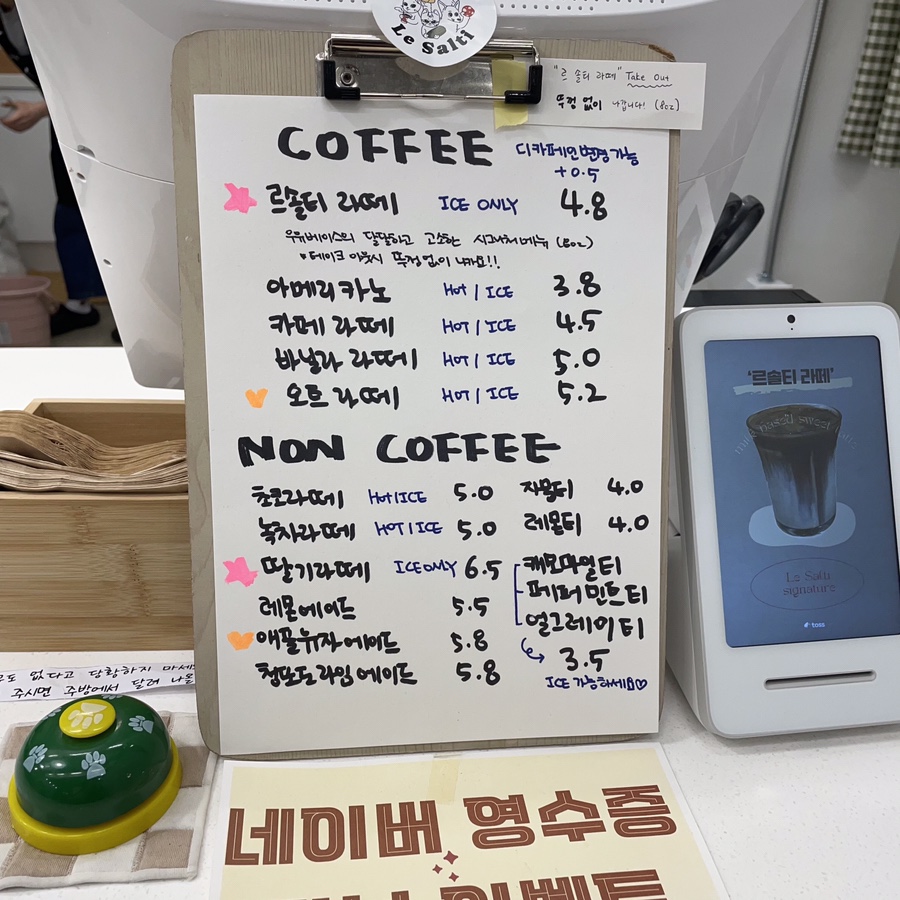 Le Salti
"르 솔티 라떼" Take Out
뚜껑 없이 나갑니다! (8oz)
COFFEE
디카페인변경가능
+0.5
르솔티 라떼 ICE ONLY 4.8
우유베이스의 달달하고 고소한 시그니처메뉴 (8oz)
테이크 아웃시 뚜껑없이 나가요!!
아메리카노 Hot / ICE 3.8
카페 라떼 HOT / ICE 4.5
바닐라 라떼 HOT / ICE 5.0
오트 라떼 HOT / ICE 5.2
NON COFFEE
초코라떼 Hot / ICE 5.0
녹차라떼 HOT / ICE 5.0
딸기라떼 ICE ONLY 6.5
레몬에이드 5.5
애플유자에이드 5.8
청포도라임에이드 5.8
자몽티 4.0
레몬티 4.0
캐모마일티
페퍼민트티
얼그레이티
3.5
ICE 가능하세요♡
없다고 당황하지 마세
주시면 주방에서 달려 나올
'르솔티 라떼'
milk based sweet
Le Salti
signature
toss
네이버 영수증
이벤트